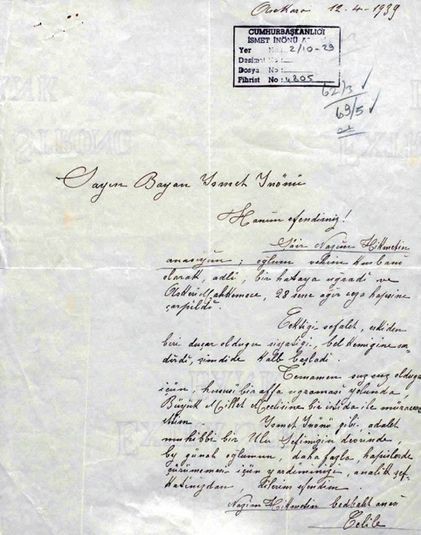 Ankara 12-4-1939
CUMHURBAŞKANLIĞI
İSMET İNÖNÜ
Yer No: 2/10-29
Desimal No:
Dosya No:
Fihrist No: 4805
62/3
69/5
Sayın Bayan İsmet İnönü
Hanım efendimiz!
Şair Nazım Hikmetin
anasıyım; oğlum vehim kurbanı
olarak adli, bir hataya uğradı ve
Askeri Mahkemece, 28 sene ağır ceza hapsine
çarpıldı.
Çektiği sefalet, eskiden
beri duçar olduğu siyatiği, bel kemiğine
şimdide kalb başladı.
Tamamen suçsuz olduğu
için, hususi bir affa uğraması yolunda,
Büyük Millet Meclisine bir istida ile müracaat
ettim. İsmet İnönü gibi adalet
muhibbi bir Ulu Şefimizin devrinde,
bi günah oğlumun, daha fazla, hapislerde
çürümemesi için yardımınızı, analık şef-
katinizden dilerim efendim.
Nazım Hikmetin bedbaht anası
Celile